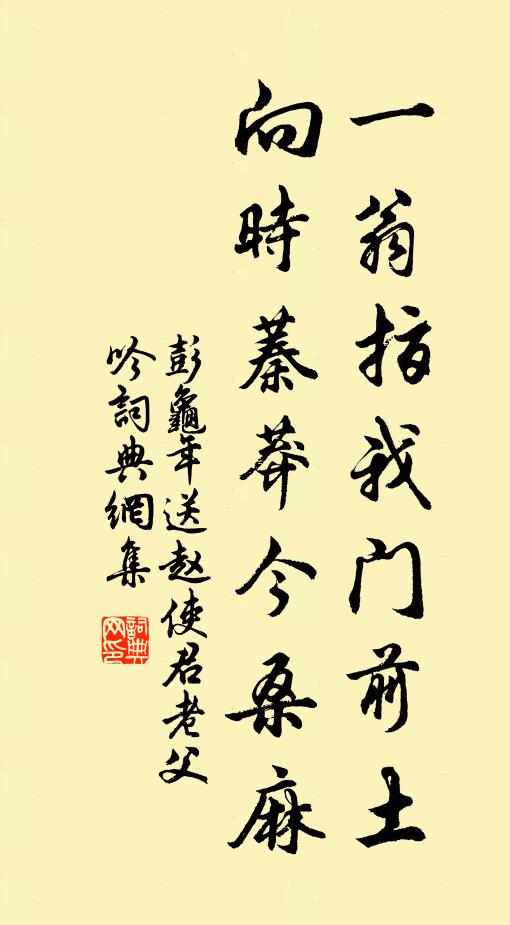 一翁指我門前土
向時蓁莽今桑麻
彭龜年送赵使君老父
吟詞典網集
詞典网印